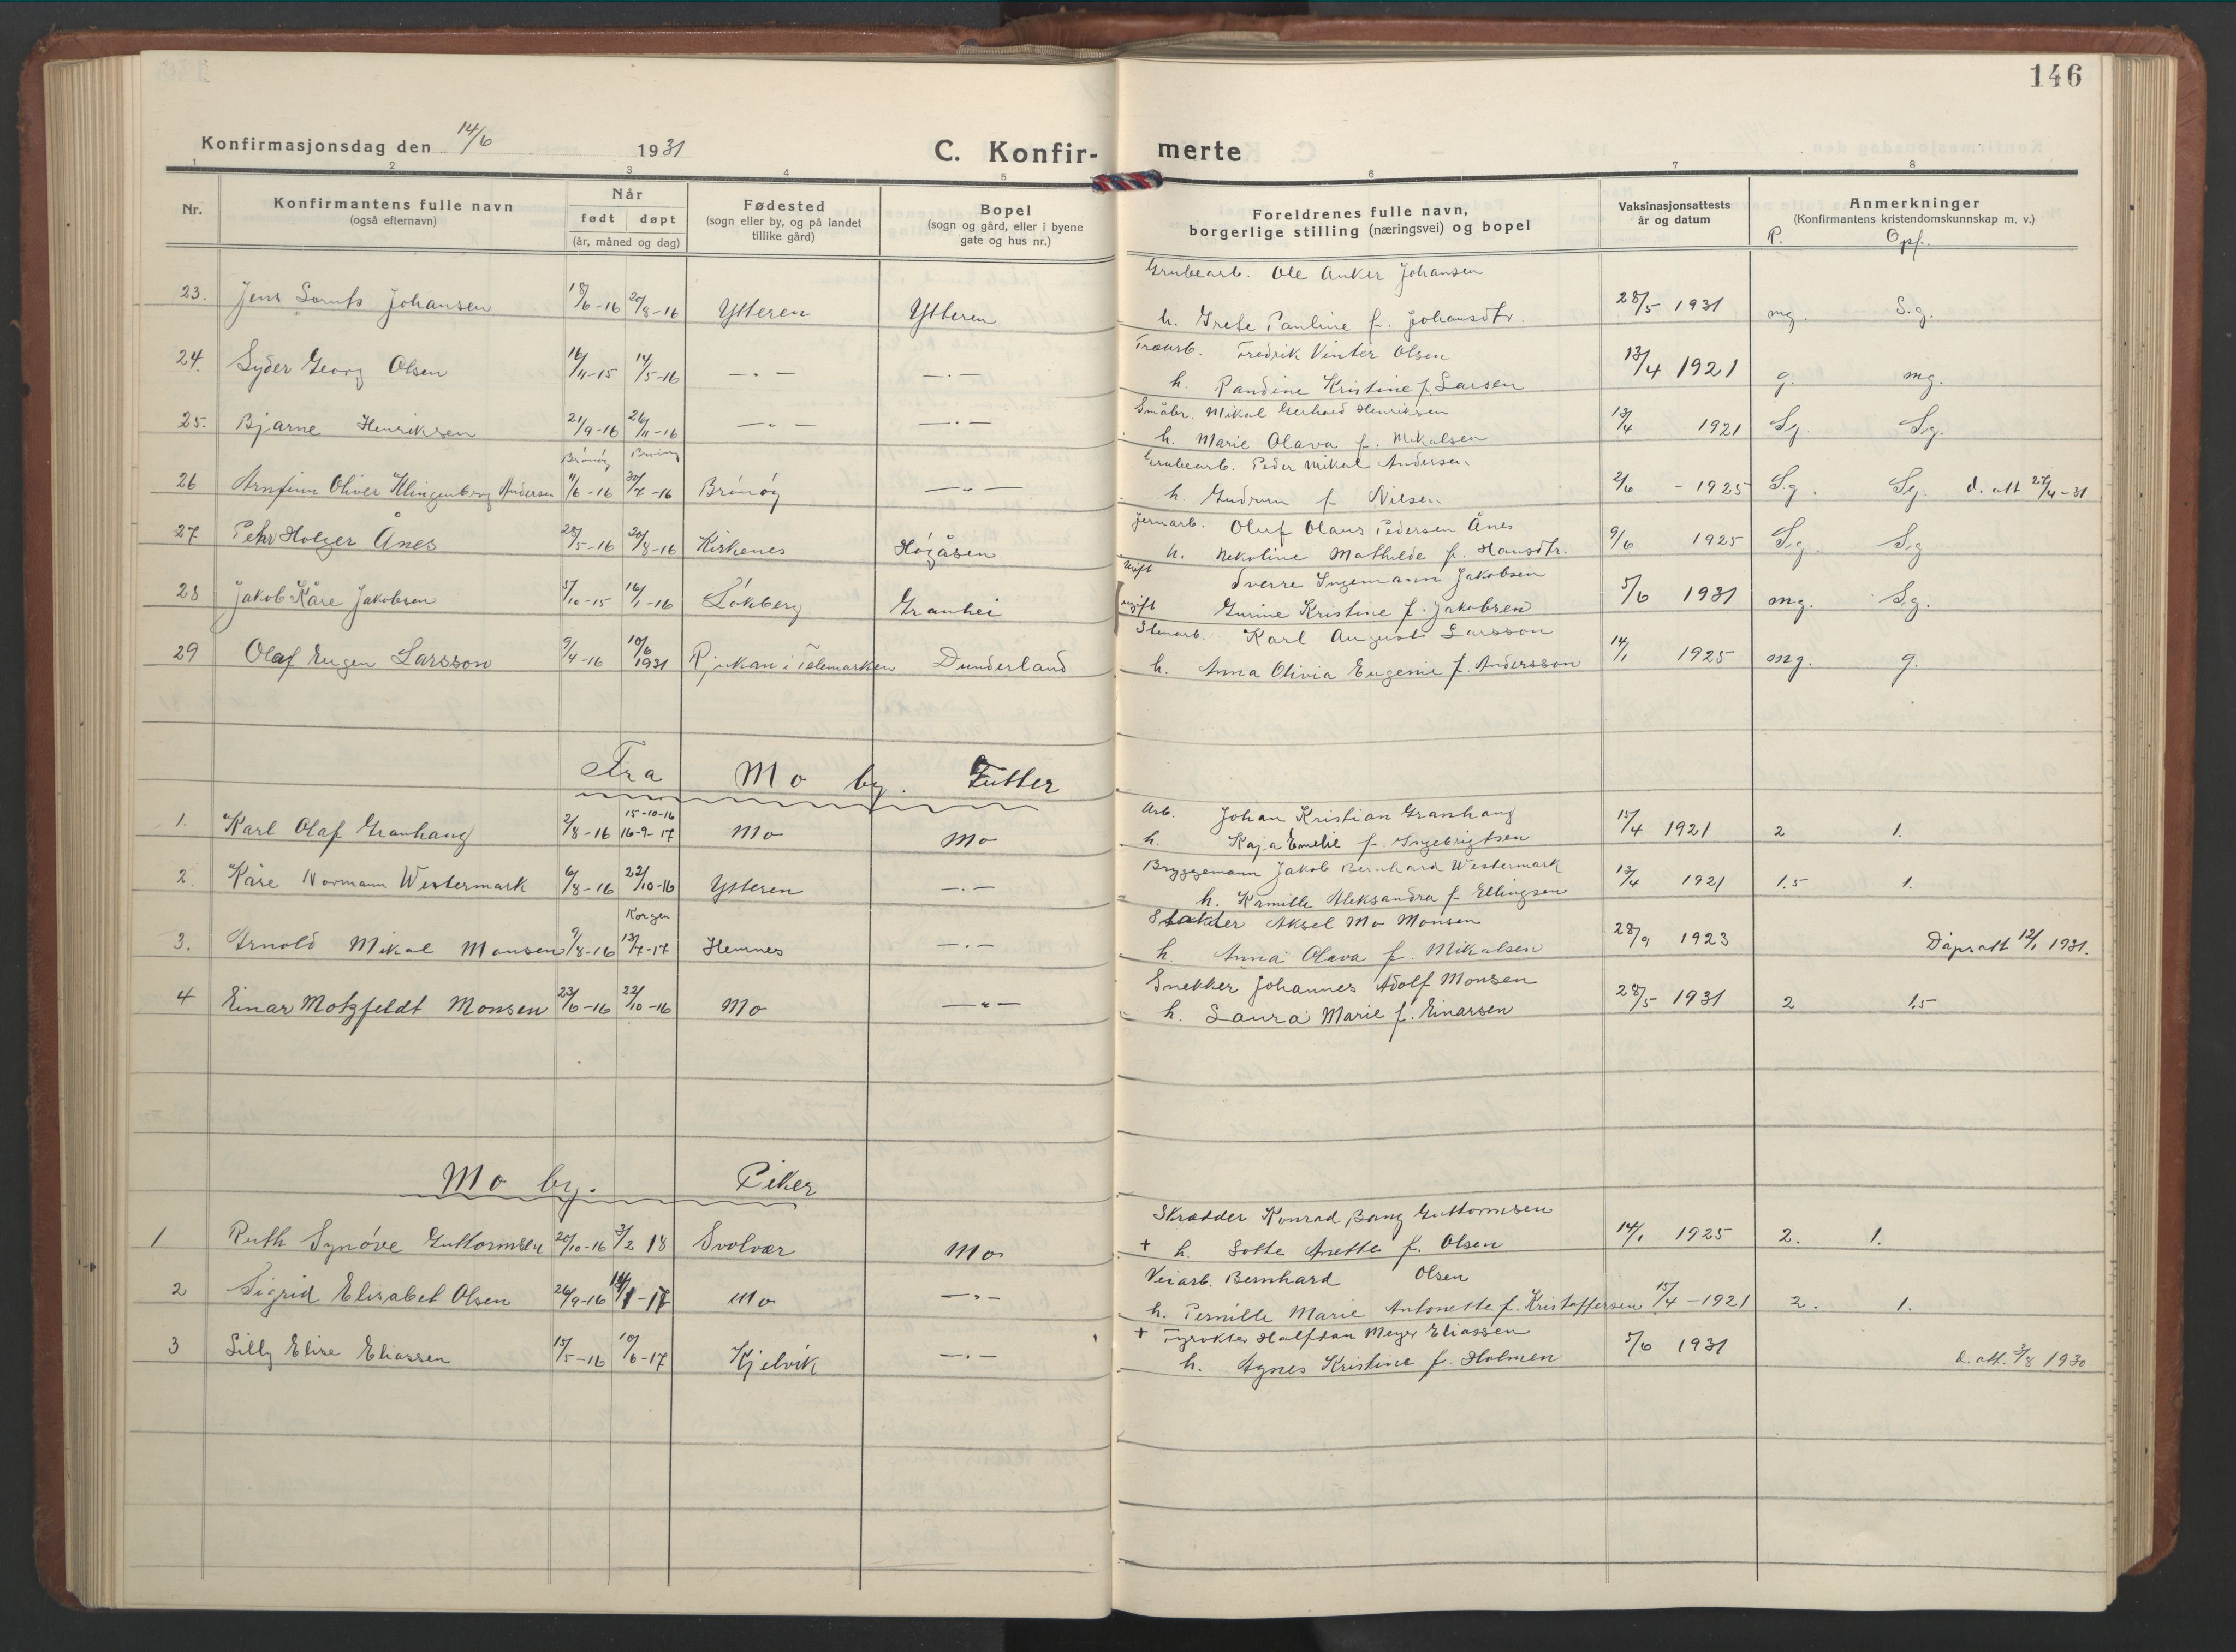 146
Konfirmasjonsdag den 14/6 1931
C. Konfir- merte
1 2 3 4 5 6 7 8
Nr.
Konfirmantens fulle navn
(også efternavn)
Når
født døpt
(år, måned og dag)
Fødested
(sogn eller by, og på landet
tillike gård)
Bopel
(sogn og gård, eller i byene
gate og hus nr.)
Foreldrenes fulle navn,
borgerlige stilling (næringsvei) og bopel
Vaksinasjonsattests
år og datum
Anmerkninger
(Konfirmantens kristendomskunnskap m. v.)
P. Opf.
Grubearb. Ole Anker Johansen
23. Jens Johansen 18/6-16 20/8-16 Ytteren Ytteren h. Grete Pauline f. Johansdtr. 28/5 1931 mg. S.g.
Træarb. Fredrik Vinter Olsen
24. Syder Georg Olsen 16/11-15 14/5-16 —„— —„— h. Randine Kristine f. Larsen 13/4 1921 g. mg.
Småbr. Mikal Gerhard Henriksen
25. Bjarne Henriksen 21/9-16 26/11-16 —„— —„— h. Marie Olava f. Mikalsen 13/4 1921 Sg. Sg.
Brönöy
Grubearb. Peder Mikal Andersen
26 Arnfinn Oliver Klingenberg Andersen 11/6-16 30/7-16 Brönöy —„— h. Gudrun f. Nilsen 2/6 - 1925 S.g. Sg. d. att 27/4-31
Jernarb. Oluf Olaus Pedersen Ånes
27 Pehr Holger Ånes 28/5-16 20/8-16 Kirkenes Högåsen h. Nekoline Mathilde f. Hansdtr. 9/6 1925 S.g. S.g
Ugift Sverre Ingemann Jakobsen
28 Jakob Kåre Jakobsen 3/10-15 16/1-16 Lökberg Granhei ugift Gurine Kristine f. Jakobsen 5/6 1931 mg. S.g.
Stenarb. Karl August Larsson
29 Olaf Eugen Larsson 9/4-16 10/6 1931 Rjukan i Telemarken Dunderland h. Anna Olivia Eugenie f. Andersson 14/1 1925 mg. g.
Fra Mo by. Gutter
15-10-16
Arb. Johan Kristian Granhaug
1. Karl Olaf Granhaug 2/8-16 16-9-17 Mo Mo h. Kaja Emelie f. Ingebrigtsen 15/4 1921 2 1.
Bryggemann Jakob Bernhard Westermark
2. Kåre Normann Westermark 6/8-16 22/10-16 Ytteren —„— h. Kamille Aleksandra f. Ellingsen 13/4 1921 1.5 1.
Korgen
Slakter Aksel Mo Monsen
3. Arnold Mikal Monsen 9/8-16 13/7-17 Hemnes —„— h. Anna Olava f. Mikalsen 28/9 1923 Dåpsatt 12/1 1931.
Snekker Johannes Adolf Monsen
4 Einar Motzfeldt Monsen 23/6-16 22/10-16 Mo —„— h. Laura Marie f. Einarsen 28/5 1931 2 1.5
Mo by. Piker
Skrædder Konrad Bang Guttormsen
1 Ruth Synöve Guttormsen 20/10-16 3/2 18 Svolvær Mo + h. Lotte Anette f. Olsen 14/1 1925 2. 1.
Veiarb. Bernhard Olsen
2 Sigrid Elisabet Olsen 26/9-16 14/1-17 Mo —„— h. Pernille Marie Antonette f. Kristoffersen 15/4-1921 2. 1.
+ Fyrvokter Halfdan Meyer Eliassen
3 Lilly Elise Eliassen 15/5-16 10/6-17 Kjelvik —„— h. Agnes Kristine f. Holmen 5/6 1931 d. att. 3/8 1930